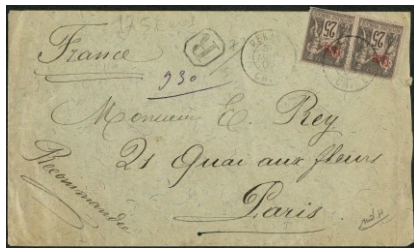 France
R
930
25
25
Monsieur E. Rey
21 Quai aux fleurs
Paris
Recommandée